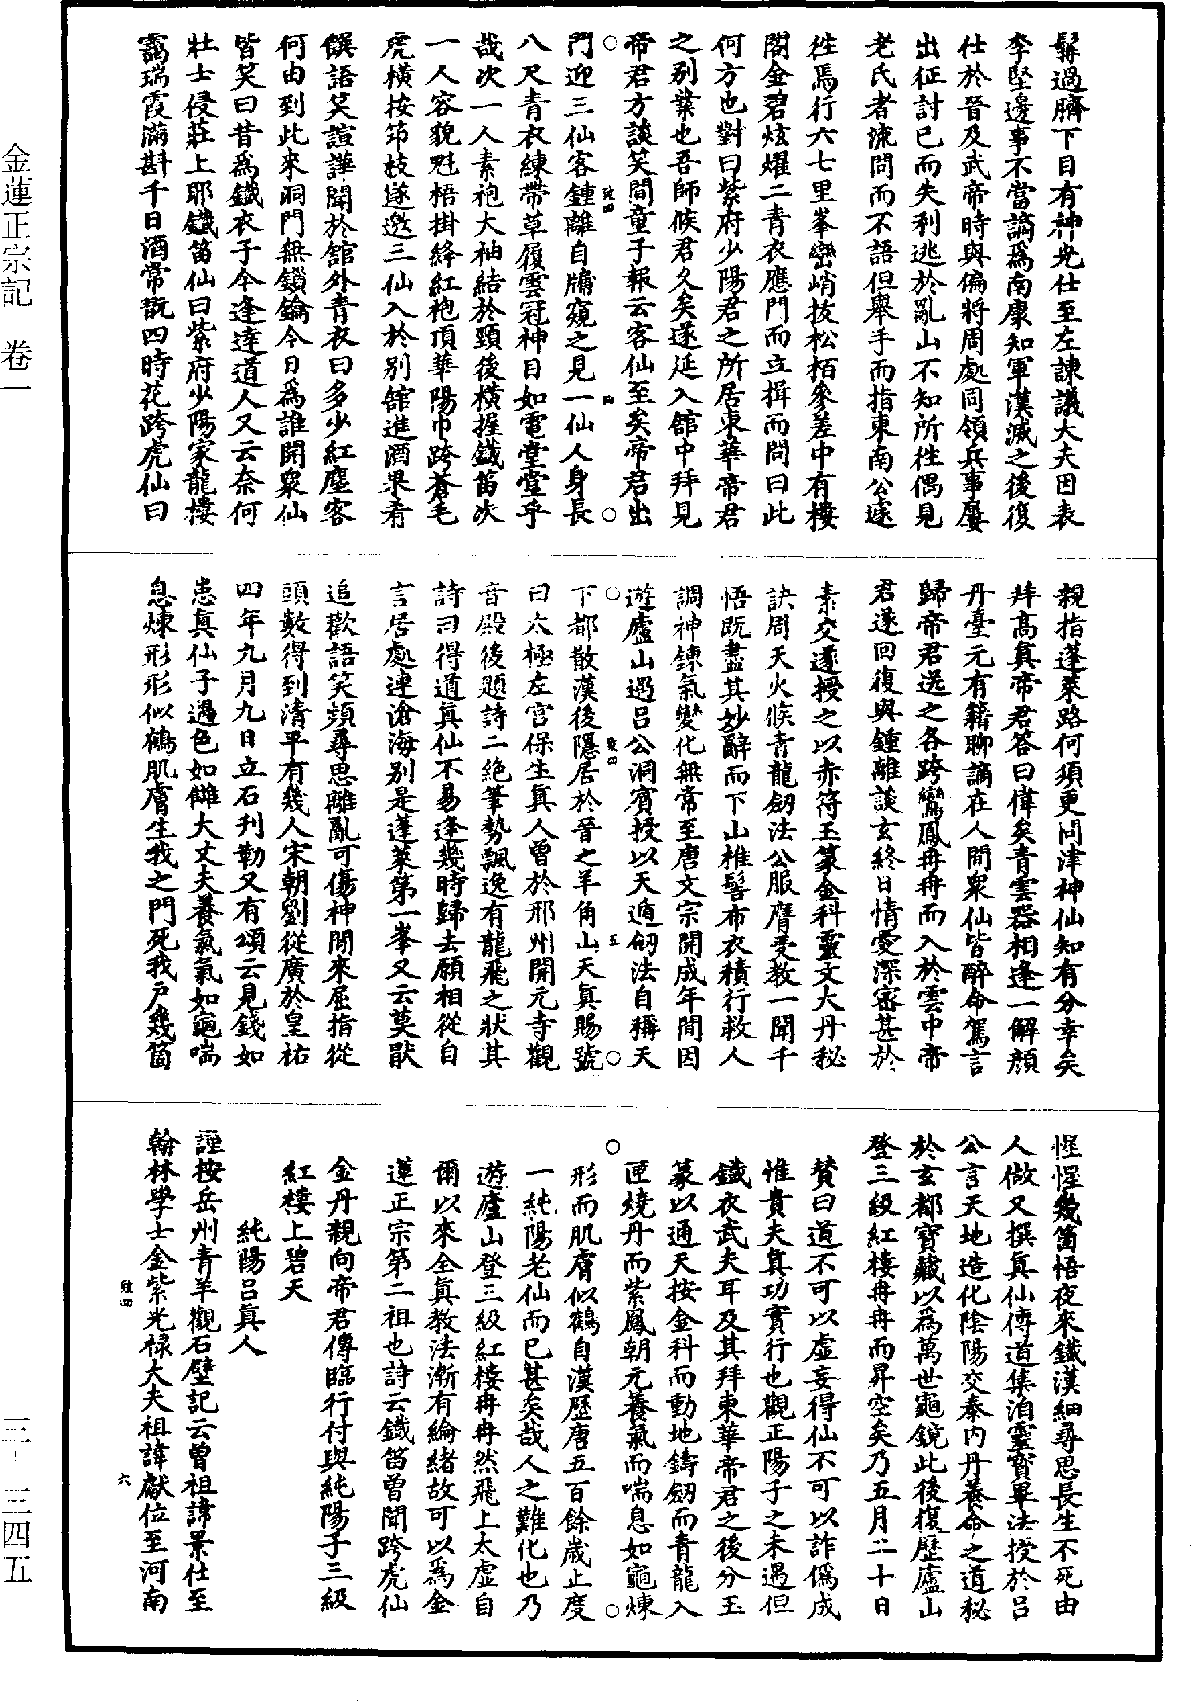 金蓮正宗記 卷一
三－三四五
髯過臍下目有神光仕至左諫議大夫因表
李堅邊事不當謫爲南康知軍漢滅之後復
仕於晉及武帝時與偏將周處同領兵事屢
出征討已而失利逃於亂山不知所往偶見
老氏者流問而不語但舉手而指東南公遂
徃焉行六七里峯巒峭拔松栢參差中有樓
閣金碧炫燿二青衣應門而立揖而問曰此
何方也對曰紫府少陽君之所居東華帝君
之别業也吾師候君久矣遂延入舘中拜見
帝君方談笑間童子報云客仙至矣帝君出
門迎三仙客鍾離自牗窺之見一仙人身長
八尺青衣練帶草履雲冠神目如電堂堂乎
哉次一人素袍大袖結於頸後橫握鐵笛次
一人容貌魁梧掛絳紅袍頂華陽巾跨蒼毛
虎橫按笻枝遂邀三仙入於别舘進酒果肴
饌語笑諠譁聞於舘外青衣曰多少紅塵客
何由到此來洞門無鎖鑰今日爲誰開衆仙
皆笑曰昔爲鐵衣子今逢達道人又云奈何
壯士侵莊上耶鐵笛仙曰紫府少陽家龍樓
靄瑞霞滿斟千日酒常翫四時花跨虎仙曰
親指蓬萊路何須更問津神仙知有分幸矣
拜高真帝君答曰偉矣青雲器相逢一解顏
丹臺元有籍聊謫在人間衆仙皆醉命駕言
歸帝君送之各跨鸞鳳冉冉而入於雲中帝
君遂回復與鍾離談玄終日情愛深密甚於
素交遂授之以赤符玉篆金科靈文大丹秘
訣周天火候青龍劒法公服膺受教一聞千
悟既盡其妙辭而下山椎髻布衣積行救人
調神鍊氣變化無常至唐文宗開成年間因
遊廬山遇吕公洞賓授以天遁劒法自稱天
下都散漢後隱居於晉之羊角山天真賜號
曰太極左宫保生真人曾於邢州開元寺觀
音殿後題詩二絶筆勢飄逸有龍飛之狀其
詩曰得道真仙不易逢幾時歸去願相從自
言居處連滄海别是蓬萊第一峯又云莫猒
追歡語笑頻尋思離亂可傷神閒來屈指從
頭數得到清平有幾人宋朝劉從廣於皇祐
四年九月九日立石刊勒又有頌云見錢如
恚真仙子遇色如讎大丈夫養氣氣如龜喘
息煉形形似鶴肌膚生我之門死我戶幾箇
惺惺幾箇悟夜來鐵漢細尋思長生不死由
人做又撰真仙傳道集洎靈寶畢法授於吕
公言天地造化陰陽交泰内丹養命之道秘
於玄都寶藏以爲萬世龜鏡此後復歷廬山
登三級紅樓冉冉而昇空矣乃五月二十日
贊曰道不可以虛妄得仙不可以詐僞成
惟貴夫真功實行也觀正陽子之未遇但
鐵衣武夫耳及其拜東華帝君之後分玉
篆以通天按金科而動地鑄劒而青龍入
匣燒丹而紫鳳朝元養氣而喘息如龜煉
形而肌膚似鶴自漢歷唐五百餘歲止度
一純陽老仙而已甚矣哉人之難化也乃
遊廬山登三級紅樓冉冉然飛上太虛自
爾以來全真教法漸有綸緒故可以爲金
蓮正宗第二祖也詩云鐵笛曾聞跨虎仙
金丹親向帝君傳臨行付與純陽子三級
紅樓上碧天
純陽吕真人
謹按岳州青羊觀石壁記云曾祖諱景仕至
翰林學士金紫光祿大夫祖諱獻位至河南